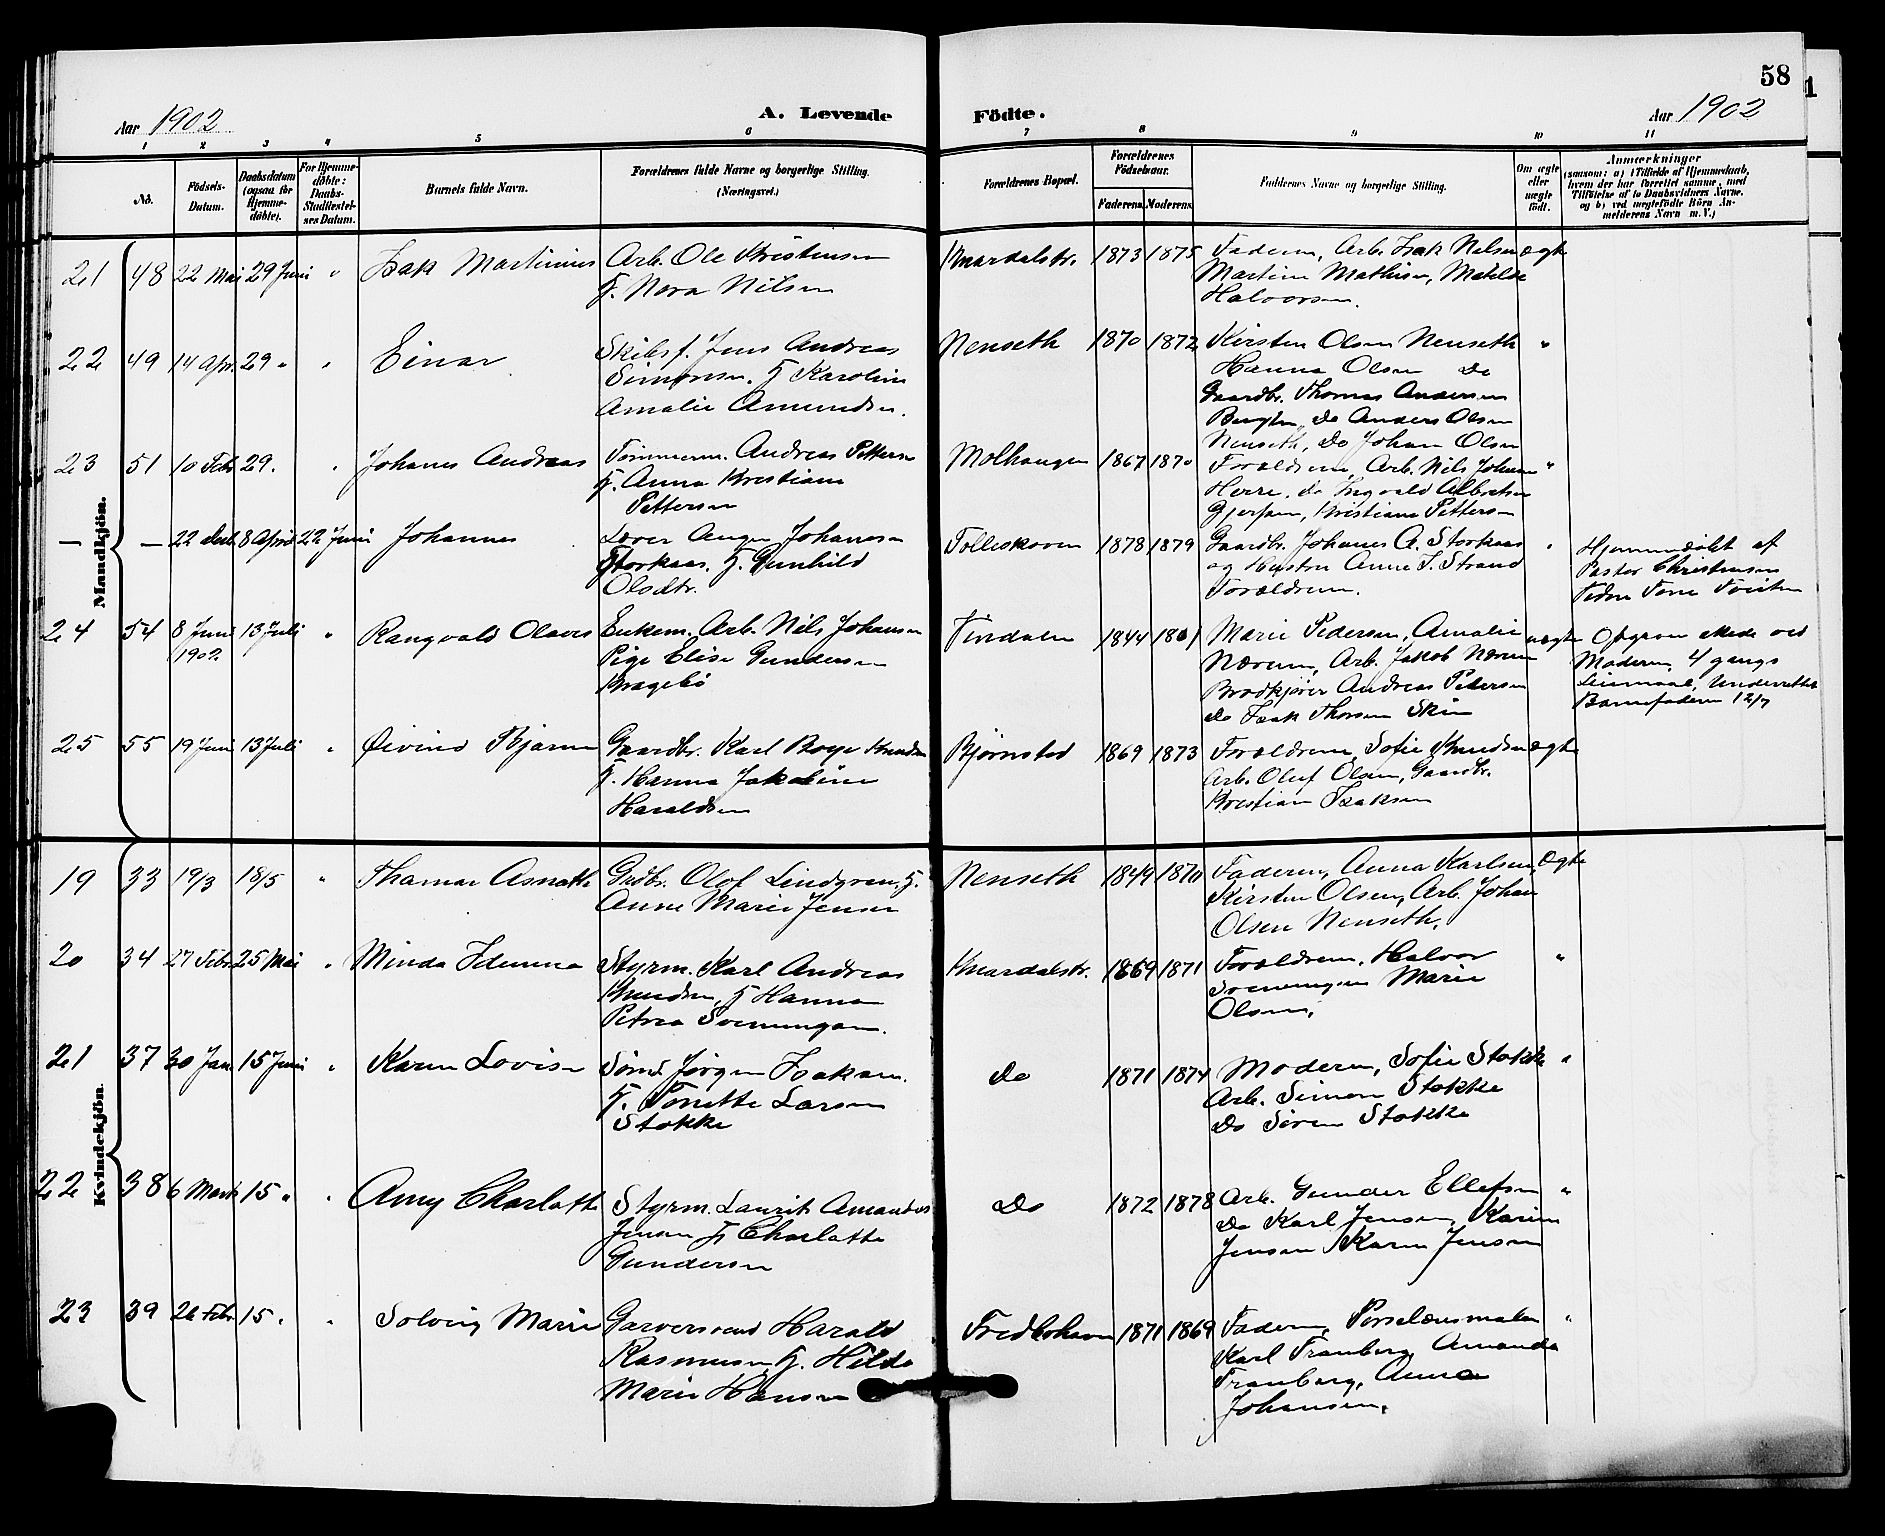 58
1
Aar 1902
A. Levende
Födte.
Aar 1902
1 2 3 4 5 6 7 8 9 10 11
No.
Födsels-Datum.
Daabsdatum (ogsaa for Hjemme-døbte).
For Hjemme-døbte: Daabs-Stadfæstel-ses Datum.
Barnets fulde Navn.
Forældrenes fulde Navne og borgerlige Stilling. (Næringsvei.)
Forældrenes Bopæl.
Forældrenes Födselsaar.
Faderens. Moderens.
Faddernes Navne og borgerlige Stilling.
Om ægte eller uægte født.
Anmærkninger
(saasom: a) i Tilfælde af Hjemmedaab, hvem der har forrettet samme, med Tilföielse af to Daabsvidners Navne, og b) ved uægtefödte Börn Anmelderens Navn m. V.)
Mandkjön.
21 48 22 Mai 29 Juni " Isak Martinius Arb. Ole Kristensen Knardalstr. 1873 1875 Faderen, Arb. Isak Nilsen ægte
H. Nora Nilsen Martin Mathisen, Matilde
Halvorsen.
22 49 14 Apr. 29 " " Einar Skibsf. Jens Andreas Nenseth 1870 1872 Kirsten Olsen Nenseth "
Simonsen, H Karoline Hanna Olsen Do
Amalie Amundsen. Gaardbr. Thomas Andersen
Do Anders Olsen
Nenseth, Do Johan Olsen
23 51 10 Febr 29. " Johanes Andreas Tømmerm. Andreas Pettersen Molhaugen 1867 1870 Forældrene, Arb. Nils Johansen "
H. Anna Kristiane Herre, do Ingvald Albertsen
Pettersen Gjerpen, Kristiane Pettersen
— — 22 8 April 22 Juni Johannes Johansen Folleskoven 1878 1879 Gaardbr. Johanes A. Storkaas "
Storkaas. H. Gunhild og Hustru Anne I. Strand
Olsdtr. Forældrene.
Hjemmedøbt af
Pastor Christensen
24 54 8 Juni 1902. 13 Juli " Rangvald Olaves Enkem. Arb. Nils Johansen Findalen 1844 1861 Marie Pedersen, Amalie uægte
Pige Elise Gundersen Nærum, Arb. Jakob Nærum
Kragebø Brødkjører Andreas Petersen
do Isak Thorsen Skien
Opgave skede ved
Moderen, 4 gangs
Leiermaal, Underrettet
Barnefaderen 12/7
25 55 19 Juni 13 Juli " Øivind Bjarne Gaardbr. Karl Boye Knudsen Bjørnstad 1869 1873 Forældrene, Sofie Knudsen ægte
H. Hanna Jakobine Arb. Oluf Olsen, Gaardbr.
Haraldsen Kristian Isaksen
Kvindekjön.
19 33 19/3 18/5 " Thamar Asnathe Grdbr. Olof Lindgren, H. Nenseth 1849 1870 Faderen, Anna Karlsen, Ægte
Anne Marie Jensen Kirsten Olsen, Arb. Johan
Olsen Nenseth.
20 34 27 Febr. 25 Mai " Minda Idunna Styrm. Karl Andreas Knardalstr. 1869 1871 Forældrene, Halvor "
Knudsen, H Hanna Svenningsen Marie
Petrea Svenningsen. Olsen.
21 37 30 Jan. 15 Juni " Karen Lovise Sømd Jørgen Isaksen. Do 1871 1874 Moderen, Sofie Stokke "
H. Tonette Larsen Arb. Simon Stokke
Stokke Do Søren Stokke
22 38 6 Marts 15 " " Amy Charlotte Styrm. Laurits Amandus Do 1872 1878 Arb. Gunder Ellefsen "
Jensen H Charlotte Do Karl Jensen, Karin
Gundersen Jensen Karen Jensen
23 39 26 Febr 15 " " Solveig Marie Garversvend Harald Fredbohavn 1871 1869 Faderen, Porselænsmaler "
Rasmusen H. Hilda Karl Tranberg, Amanda
Marie Hansen Tranberg, Anna
Johansen.